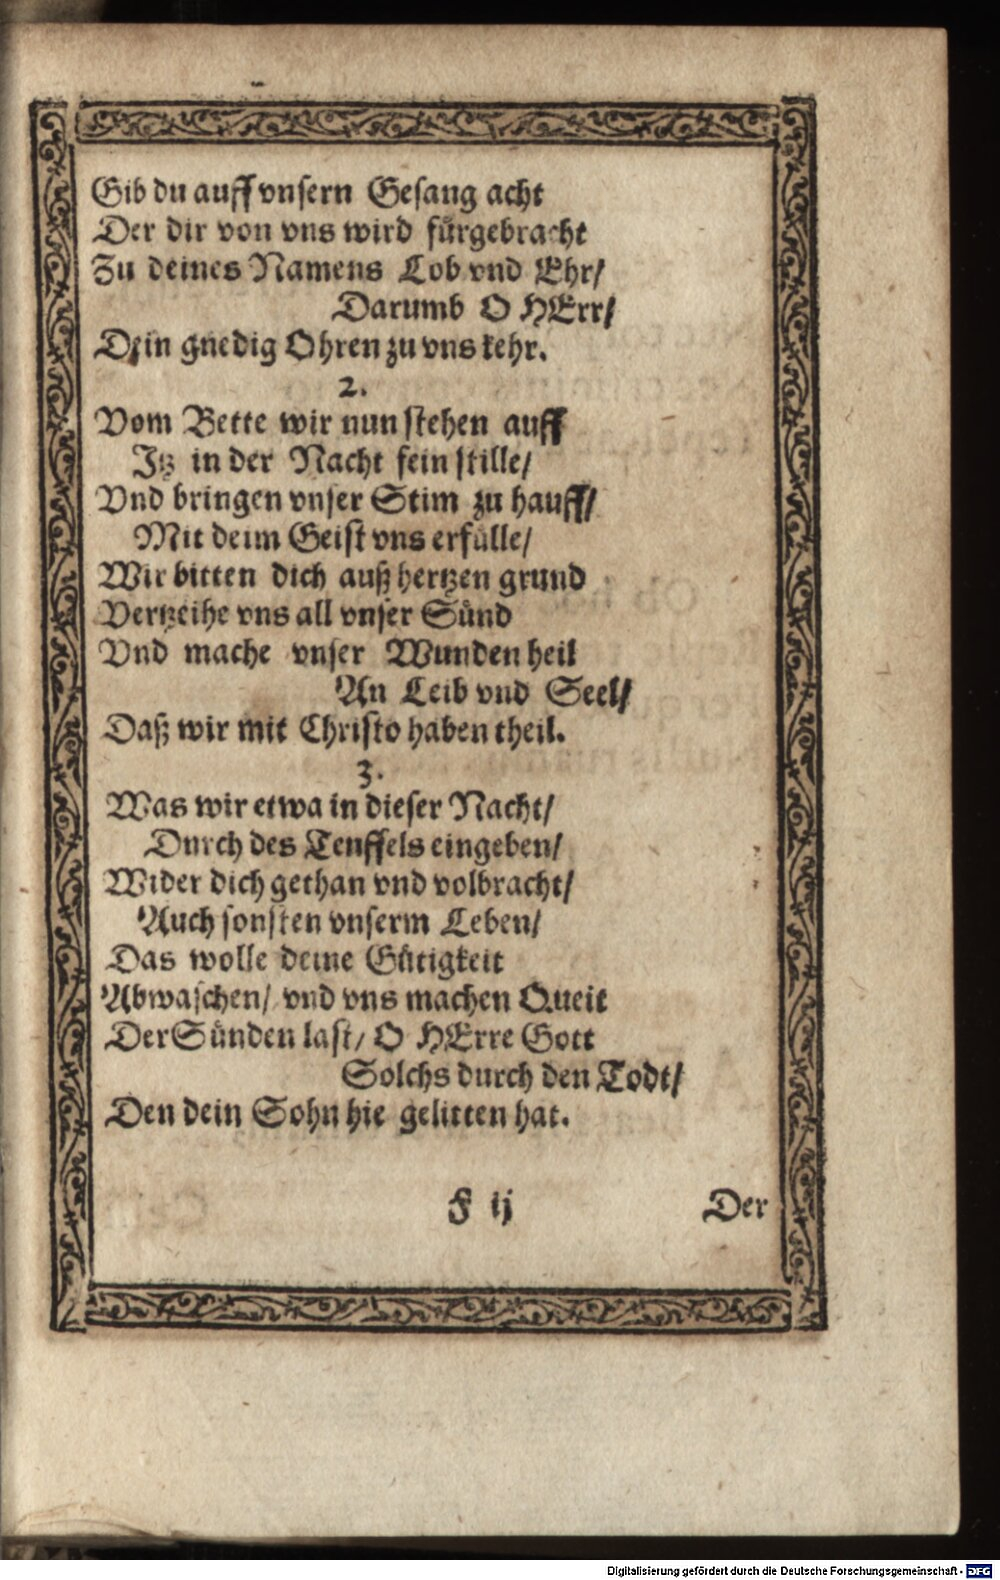 Gib du auff vnsern Gesang acht
Der dir von vns wird fürgebracht
Zu deines Namens Lob vnd Ehr/
Darumb O HErr/
Dein gnedig Ohren zu vns kehr.
2.
Vom Bette wir nun stehen auff
Itz in der Nacht fein stille/
Vnd bringen vnser Stim zu hauff/
Mit deim Geist vns erfülle/
Wir bitten dich auß hertzen grund
Vertzeihe vns all vnser Sünd
Vnd mache vnser Wunden heil
An Leib vnd Seel/
Daß wir mit Christo haben theil.
3.
Was wir etwa in dieser Nacht/
Durch des Teuffels eingeben/
Wider dich gethan vnd volbracht/
Auch sonsten vnserm Leben/
Das wolle deine Gütigkeit
Abwaschen/ vnd vns machen Queit
Der Sünden last/ O HErre Gott
Solchs durch den Todt/
Den dein Sohn hie gelitten hat.
F ij Der
Digitalisierung gefördert durch die Deutsche Forschungsgemeinschaft - DFG